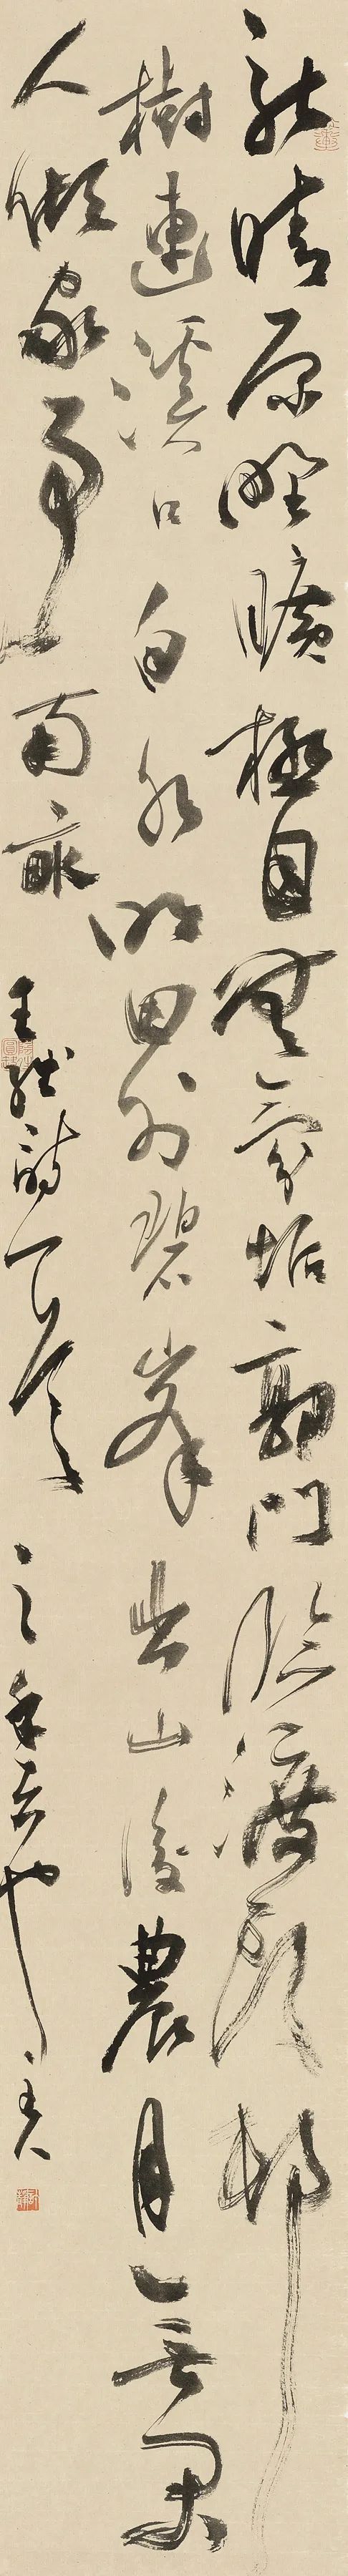 新晴原野曠極目無氛垢郭門臨渡頭邨
樹連溪口白水明田外碧峯出山後農月無閑
人傾家事南畝 王維詩 之